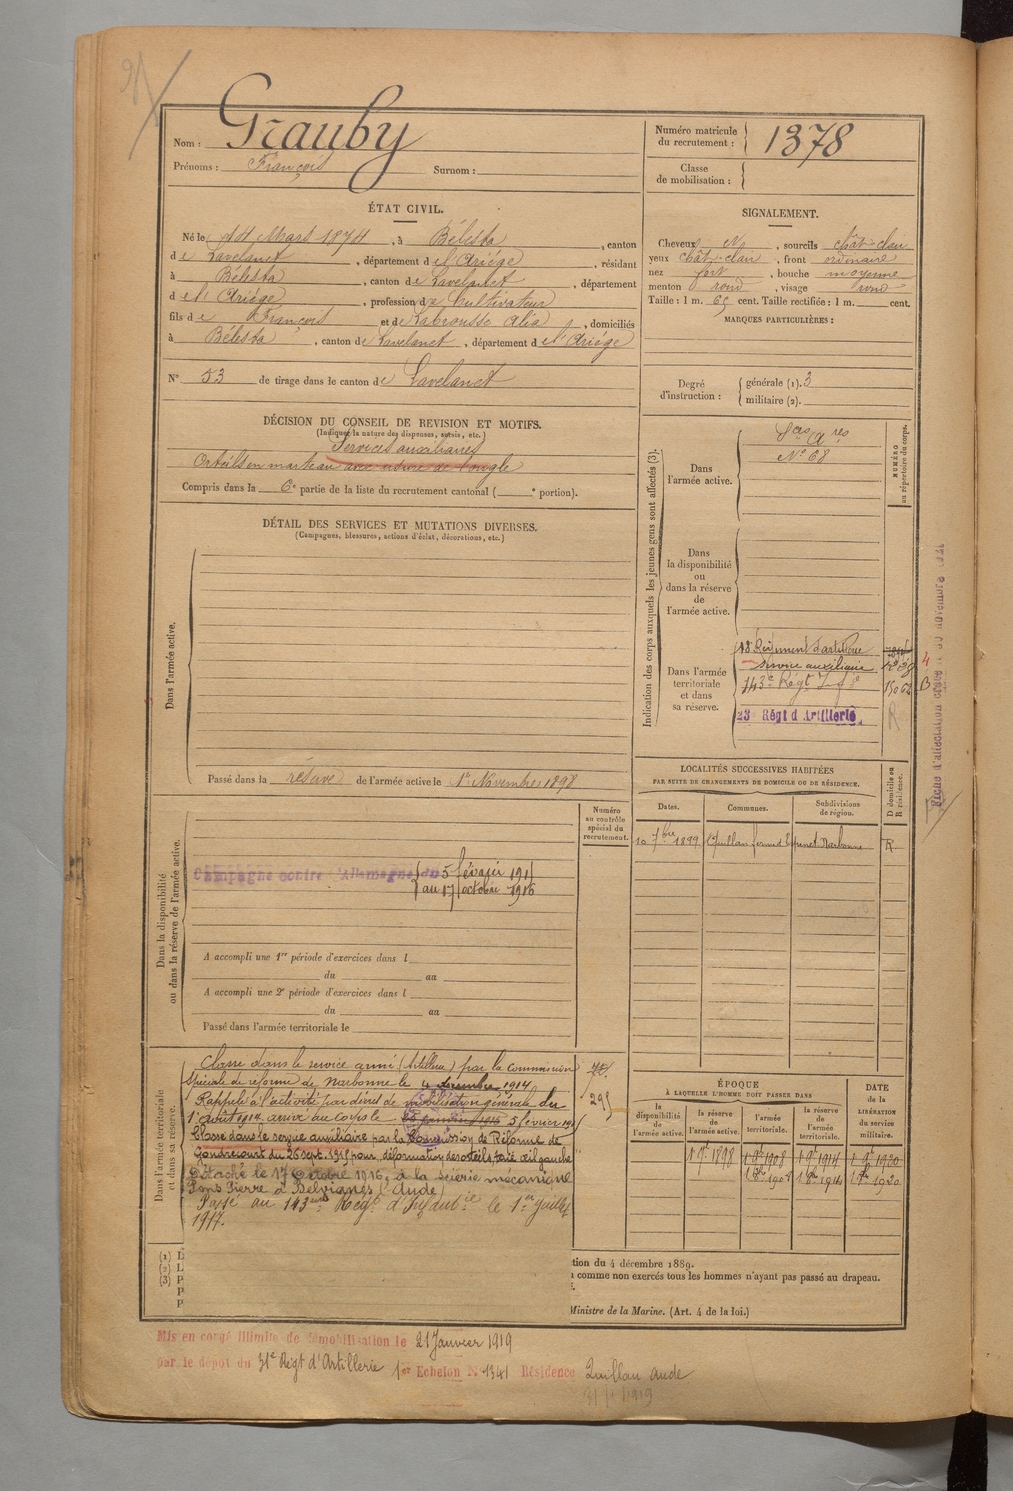 Nom : Grauby
Prénoms : François Surnom :
Numéro matricule
du recrutement : 1378
Classe
de mobilisation :
ÉTAT CIVIL.
Né le Mars 1874, à Bélesta, canton
de Lavelanet, département de l'Ariége, résidant
à Bélesta, canton de Lavelanet, département
de l'Ariége, profession de Cultivateur
fils de François et de Labrousse Alia, domiciliés
à Bélesta, canton de Lavelanet, département de l'Ariége
N° 53 de tirage dans le canton de Lavelanet
SIGNALEMENT.
Cheveux , sourcils chât. clair
yeux chât. clair, front ordinaire
nez fort, bouche moyenne
menton rond, visage rond
Taille : 1 m. 65 cent. Taille rectifiée : 1 m. cent.
MARQUES PARTICULIÈRES :
Degré
d'instruction :
générale (1). 3
militaire (2).
DÉCISION DU CONSEIL DE REVISION ET MOTIFS.
(Indiquer la nature des dispenses, sursis, etc.)
Services auxiliaires
Orteils en marteau avec usure de l'ongle
Compris dans la 6e partie de la liste du recrutement cantonal ( e portion).
DÉTAIL DES SERVICES ET MUTATIONS DIVERSES.
(Campagnes, blessures, actions d'éclat, décorations, etc.)
Dans l'armée active.
Passé dans la réserve de l'armée active le 1er Novembre 1898
Indication des corps auxquels les jeunes gens sont affectés (3).
NUMÉRO
au répertoire du corps.
Dans
l'armée active.
Sces Ares
N° 68
Dans
la disponibilité
ou
dans la réserve
de
l'armée active.
Dans l'armée
territoriale
et dans
sa réserve.
18e Régiment d'artillerie
service auxiliaire
143e Régt
23e Régt d'Artillerie
LOCALITÉS SUCCESSIVES HABITÉES
PAR SUITE DE CHANGEMENTS DE DOMICILE OU DE RÉSIDENCE.
D domicile ou
R résidence.
Dates.
Communes.
Subdivisions
de région.
10 7bre 1899 Quillan Narbonne R.
Dans la disponibilité
ou dans la réserve de l'armée active.
Numéro
au contrôle
spécial du
recrutement.
Campagne contre l'Allemagne du 5 février 191
au 17 octobre 1916
A accompli une 1re période d'exercices dans l
du au
A accompli une 2e période d'exercices dans l
du au
Passé dans l'armée territoriale le
Dans l'armée territoriale
et dans sa réserve.
Classé dans le service armé (Artillerie) par la commission
spéciale de réforme de Narbonne le 4 décembre 1914
Rappelé à l'activité par décret de mobilisation générale du
1er août 1914. arrivé au corps le 5 février 191
Classé dans le service auxiliaire par la Commission de Réforme de
Gondrecourt du 26 sept. 1915 pour déformation des orteils, œil gauche
Détaché le 17 Octobre 1916, à la scierie mécanique
Pons Pierre à Belvianes (Aude)
Passé au 143eme Régt d'Infanterie le 1er Juillet
1917.
ÉPOQUE
À LAQUELLE L'HOMME DOIT PASSER DANS
DATE
de la
LIBÉRATION
du service
militaire.
la
disponibilité
de l'armée
active.
la réserve
de
l'armée active.
l'armée
territoriale.
la réserve
de
l'armée
territoriale.
1898 1908 1914 1920
1908 1914 1920
(1) L
(2) L
(3) P
P
P
tion du 4 décembre 1889.
comme non exercés tous les hommes n'ayant pas passé au drapeau.
Ministre de la Marine. (Art. 4 de la loi.)
Mis en congé illimité de démobilisation le 21 Janvier 1919
par le dépôt du 31e Régt d'Artillerie 1er Echelon N° 1341 Résidence Quillan Aude